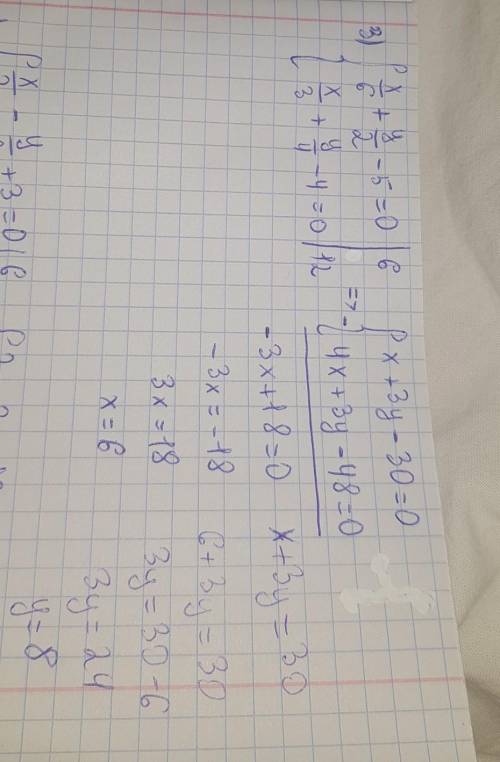 3) { x/6 + y/2 - 5 = 0 | 6
{ x/3 + y/4 - 4 = 0 | 12
=> - { x + 3y - 30 = 0
{ 4x + 3y - 48 = 0
-3x + 18 = 0
-3x = -18
3x = 18
x = 6
x + 3y = 30
6 + 3y = 30
3y = 30 - 6
3y = 24
y = 8
+ 3 = 0 | 6